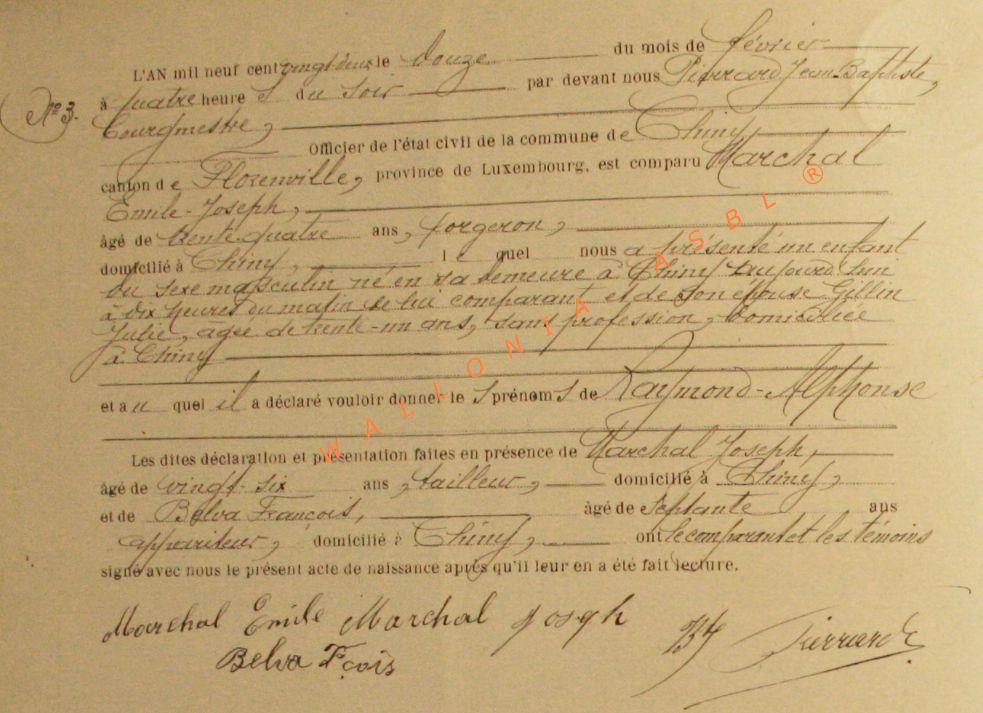 L'AN mil neuf cent vingt deux le douze du mois de février
N° 3.
à quatre heure s du soir par devant nous Pierrard Jean Baptiste,
bourgmestre,
Officier de l'état civil de la commune de Chiny
canton de Florenville, province de Luxembourg, est comparu Marchal
Emile-Joseph,
âgé de trente quatre ans, forgeron,
domicilié à Chiny, l e quel nous a présenté un enfant
du sexe masculin né en sa demeure à Chiny aujourd'hui
à dix heures du matin de lui comparant et de son épouse Gillin
Julie, agée de trente-un ans, sans profession, domiciliée
à Chiny
et au quel il a déclaré vouloir donner le s prénom s de Raymond-Alphonse
Les dites déclaration et présentation faites en présence de Marchal Joseph,
âgé de vingt-six ans, tailleur, domicilié à Chiny,
et de Belva François, âgé de septante ans
appariteur, domicilié à Chiny, ont le comparant et les témoins
signé avec nous le présent acte de naissance après qu'il leur en a été fait lecture.
Marchal Emile Marchal Josgh
Belva Fçois Pierrard
WALLONIA ASBL ®